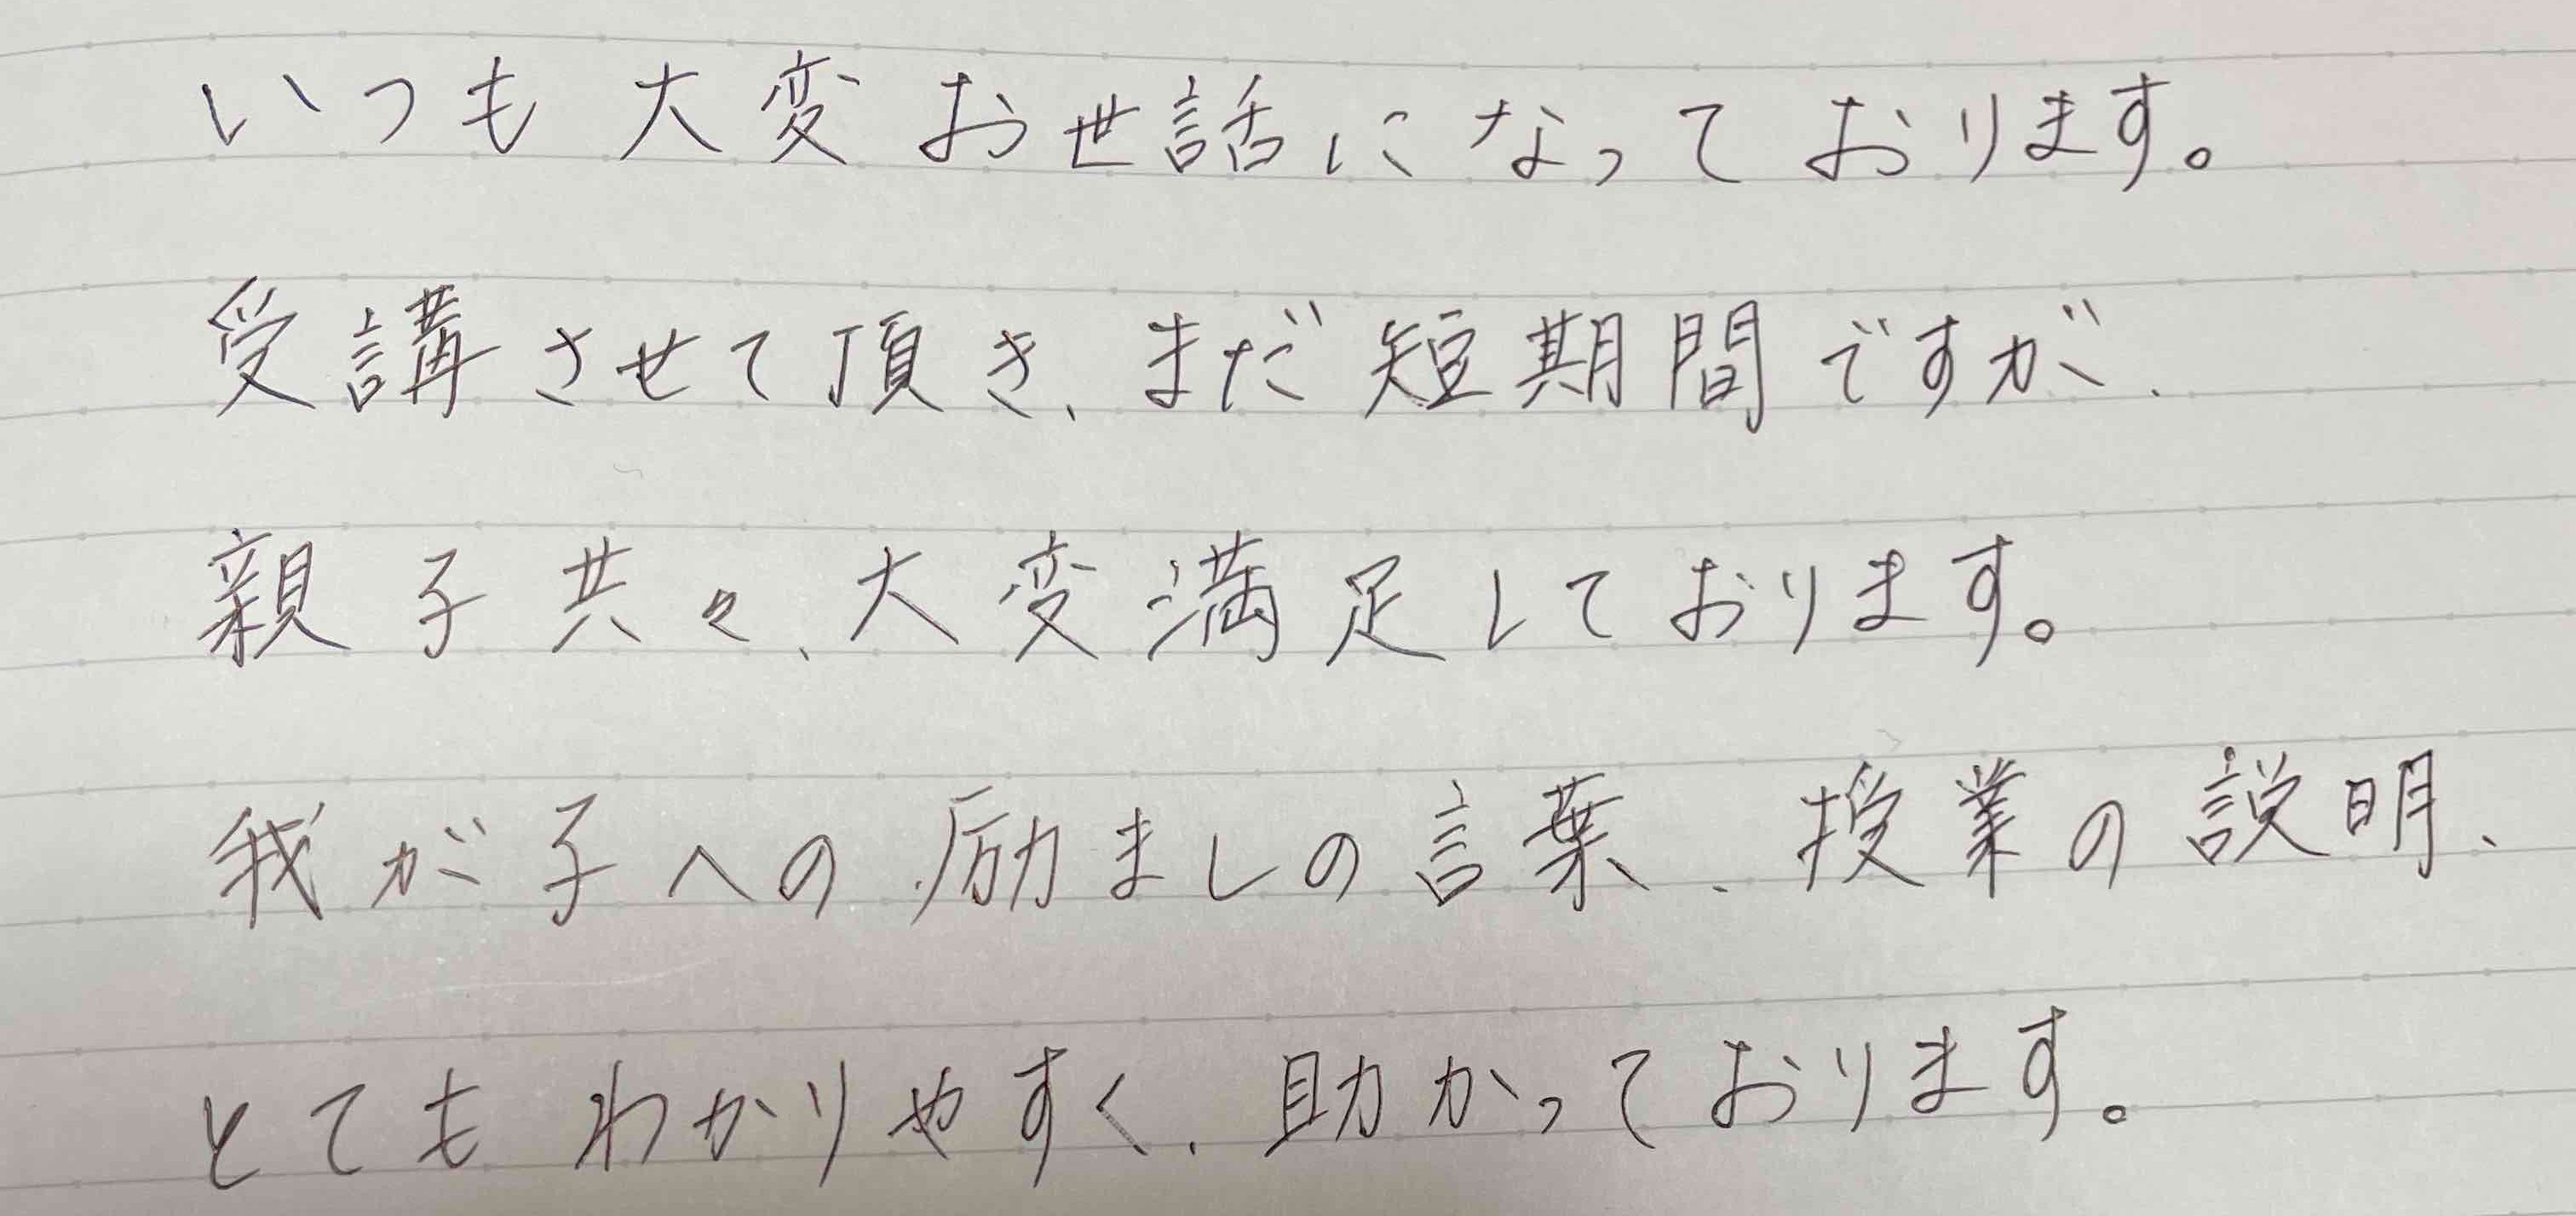 いつも大変お世話になっております。
受講させて頂き、まだ短期間ですが、
親子共々、大変満足しております。
我が子への励ましの言葉、授業の説明、
とてもわかりやすく、助かっております。